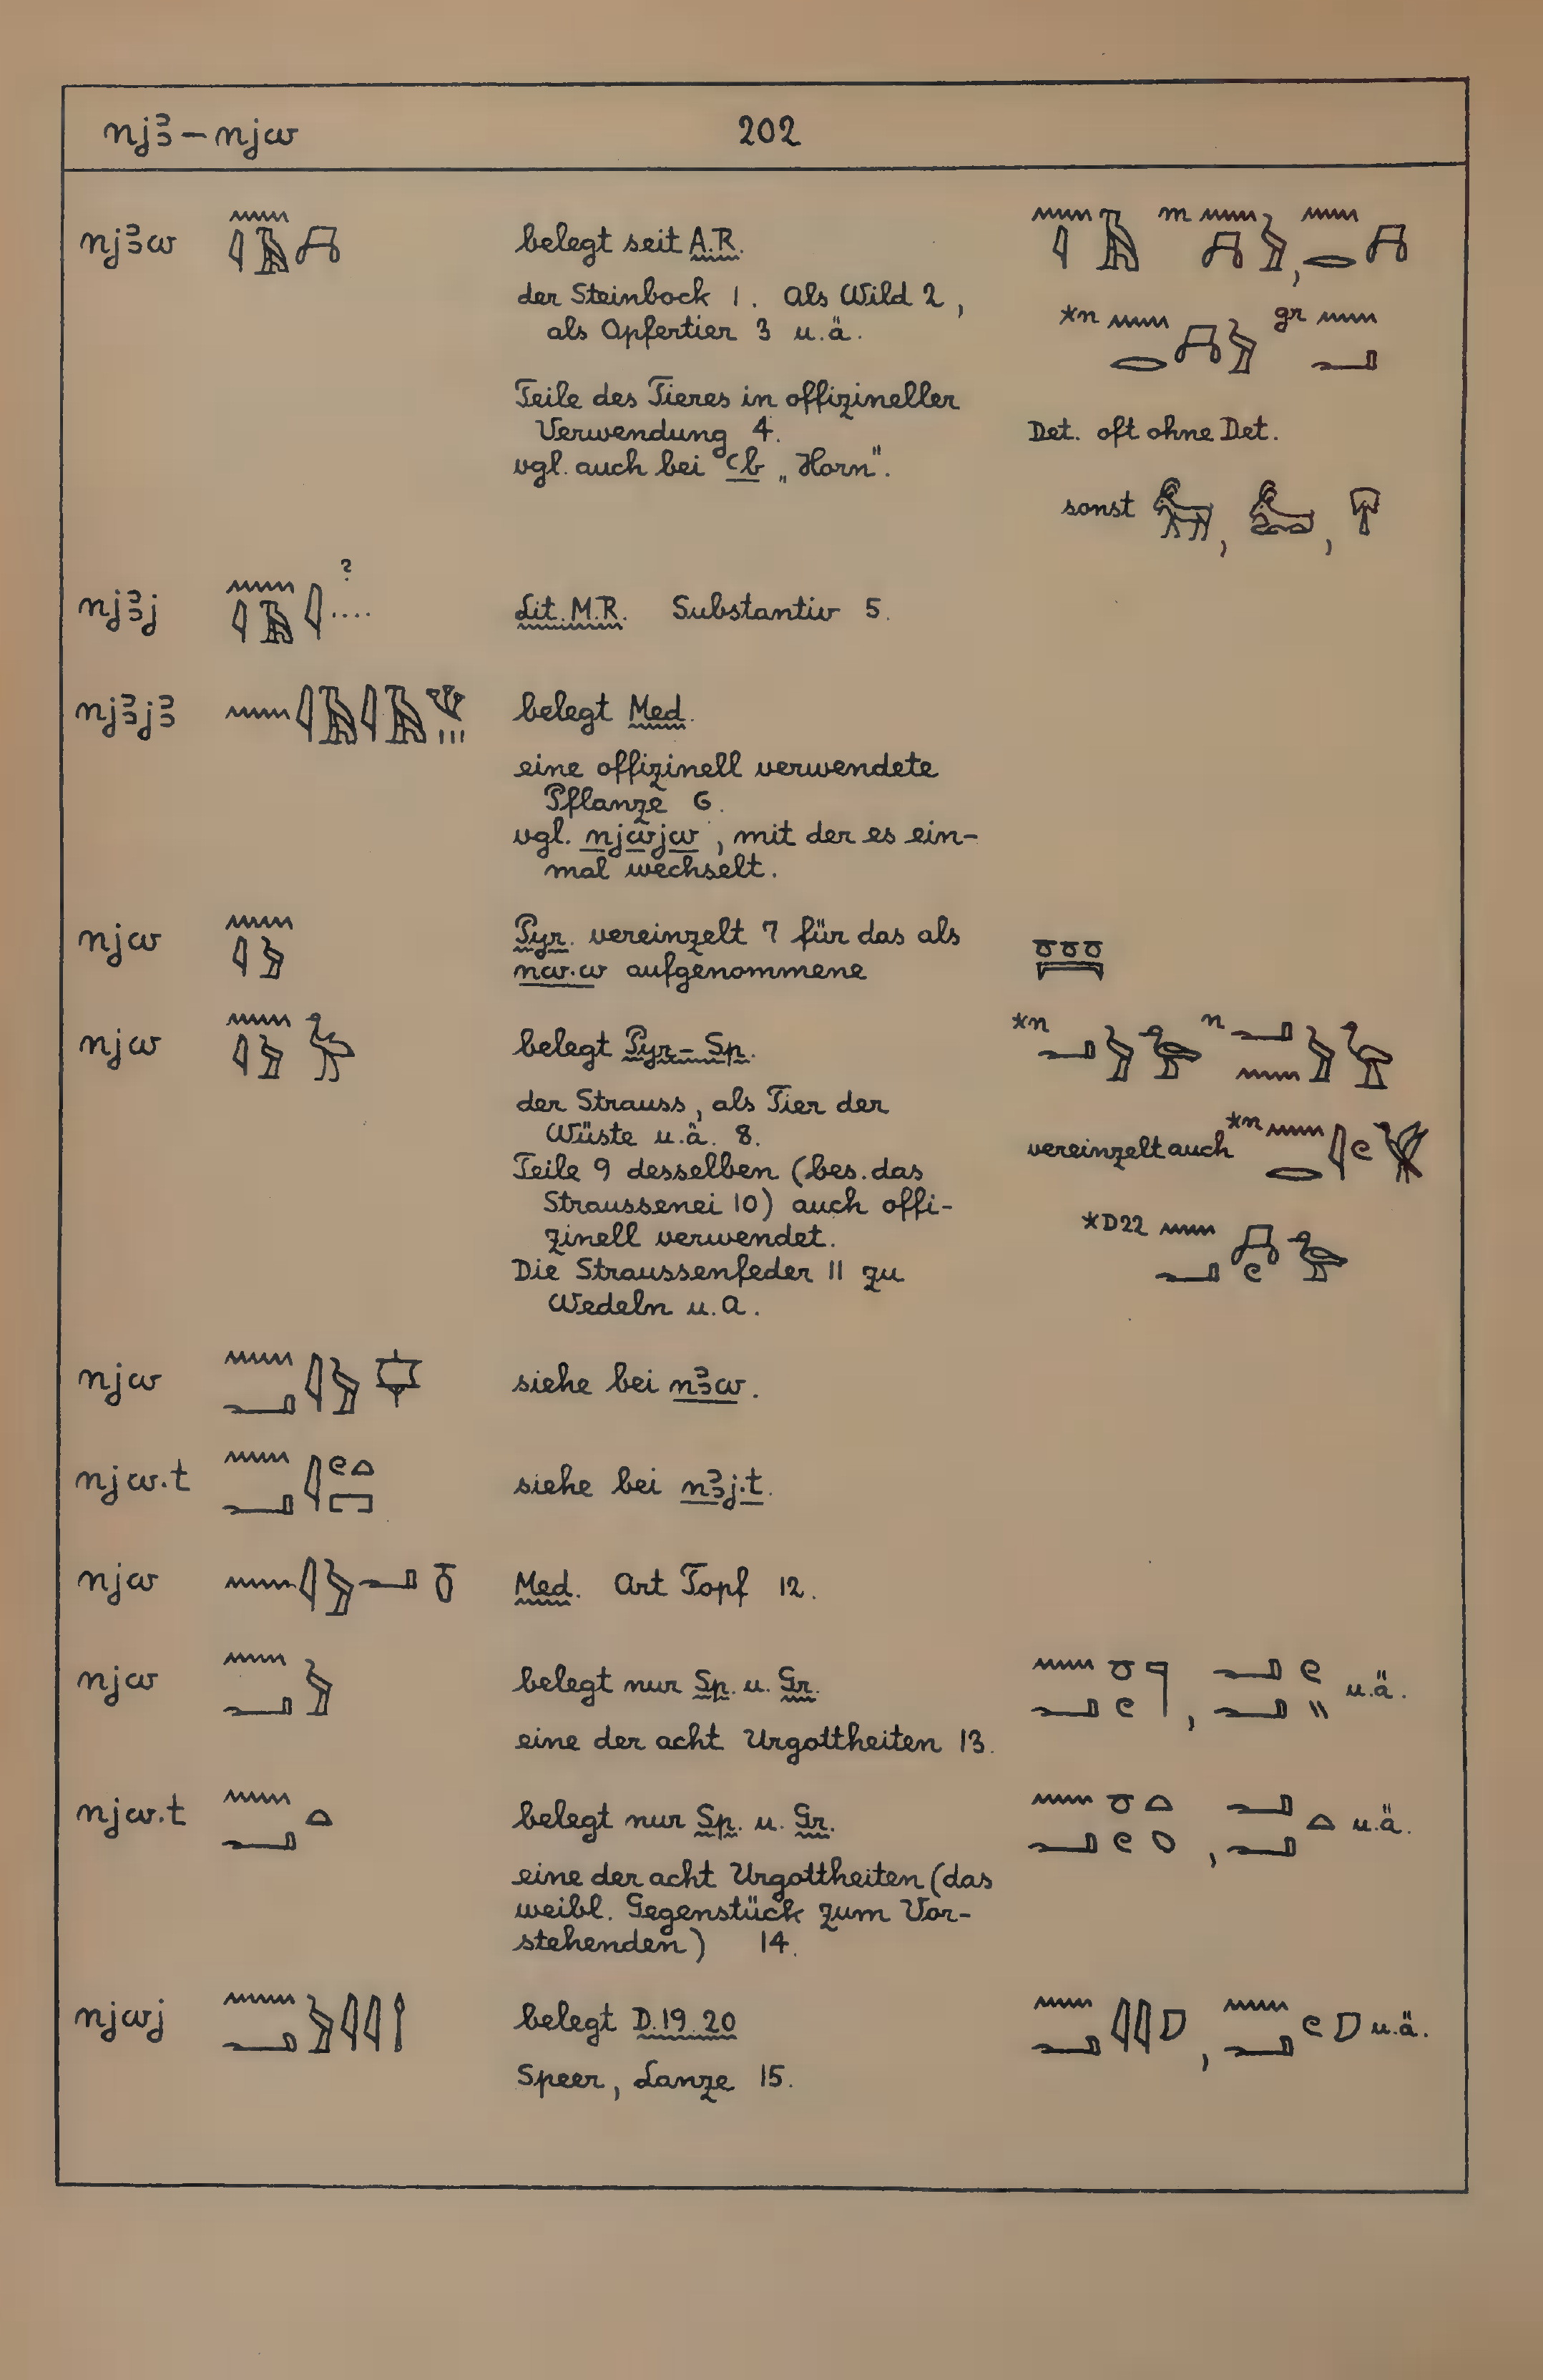 njꜣ – njw 202
njꜣw
belegt seit A.R.
der Steinbock 1. Als Wild 2,
als Opfertier 3 u.ä.
Teile des Tieres in offizineller
Verwendung 4.
vgl. auch bei ꜥb „Horn".
m
*n gr
Det. oft ohne Det.
sonst
njꜣj ? .... Lit. M.R. Substantiv 5.
njꜣjꜣ belegt Med.
eine offizinell verwendete
Pflanze 6.
vgl. njwjw, mit der es ein-
mal wechselt.
njw Pyr. vereinzelt 7 für das als
nw.w aufgenommene
njw belegt Pyr – Sp.
der Strauss, als Tier der
Wüste u.ä. 8.
Teile 9 desselben (bes. das
Straussenei 10) auch offi-
zinell verwendet.
Die Straussenfeder 11 zu
Wedeln u. a.
*n n
vereinzelt auch *n
*D22
njw siehe bei nꜣw.
njw.t siehe bei nꜣj.t.
njw Med. Art Topf 12.
njw belegt nur Sp. u. Gr. u.ä.
eine der acht Urgottheiten 13.
njw.t belegt nur Sp. u. Gr. u.ä.
eine der acht Urgottheiten (das
weibl. Gegenstück zum Vor-
stehenden) 14.
njwj belegt D. 19. 20 u.ä.
Speer, Lanze 15.